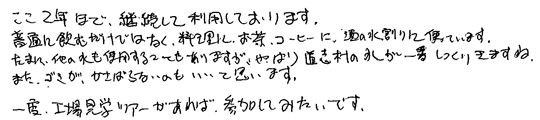 ここ2年ほど、継続して利用しております。
普通に飲むだけではなく、料理に、お茶、コーヒーに、酒の水割りに使っています。
たまに、他の水も使用することもありますが、やはり直志村の水が一番しっくりきますね。
また、ゴミが、かさばらないのもいいと思います。
一度、工場見学ツアーがあれば、参加してみたいです。